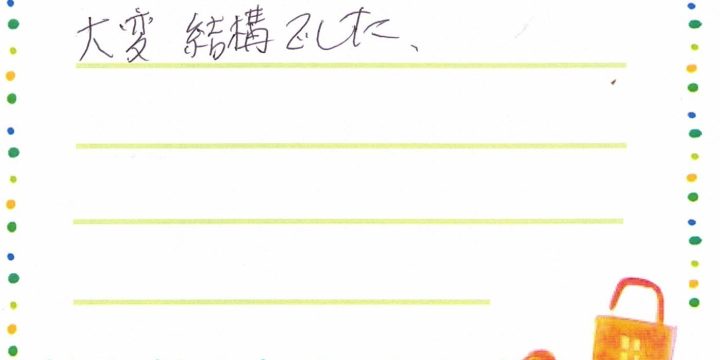 大変 結構でした、